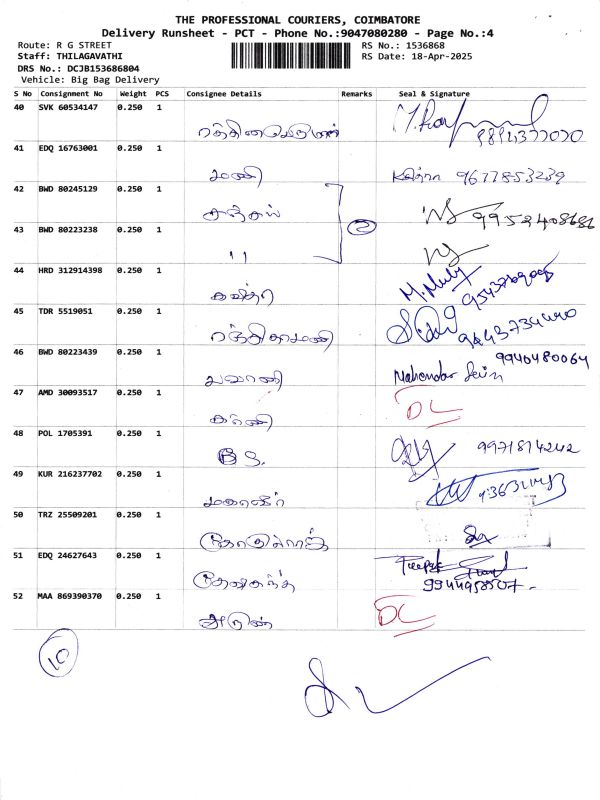 THE PROFESSIONAL COURIERS, COIMBATORE
Delivery Runsheet - PCT - Phone No.:9047080280 - Page No.:4
Route: R G STREET
Staff: THILAGAVATHI
DRS No.: DCJB153686804
Vehicle: Big Bag Delivery
RS No.: 1536868
RS Date: 18-Apr-2025
S No Consignment No Weight PCS Consignee Details Remarks Seal & Signature
40 SVK 60534147 0.250 1
41 EDQ 16763001 0.250 1
மணி 9677853239
42 BWD 80245129 0.250 1
சஞ்சய் 9952408686
43 BWD 80223238 0.250 1
" 2
44 HRD 312914398 0.250 1
கவித்ரா
45 TDR 5519051 0.250 1
46 BWD 80223439 0.250 1
பவானி Mahendar 9940480064
47 AMD 30093517 0.250 1
DL
48 POL 1705391 0.250 1
B S. 9971874242
49 KUR 216237702 0.250 1
50 TRZ 25509201 0.250 1
51 EDQ 24627643 0.250 1
9944958507
52 MAA 869390370 0.250 1
அருண் DL
10